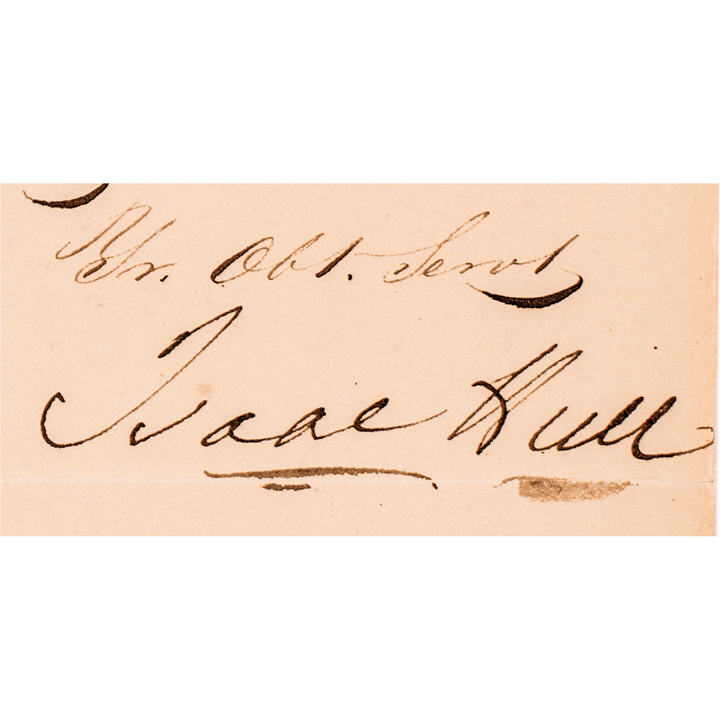 Yr. Obt. Servt
Isaac Hull